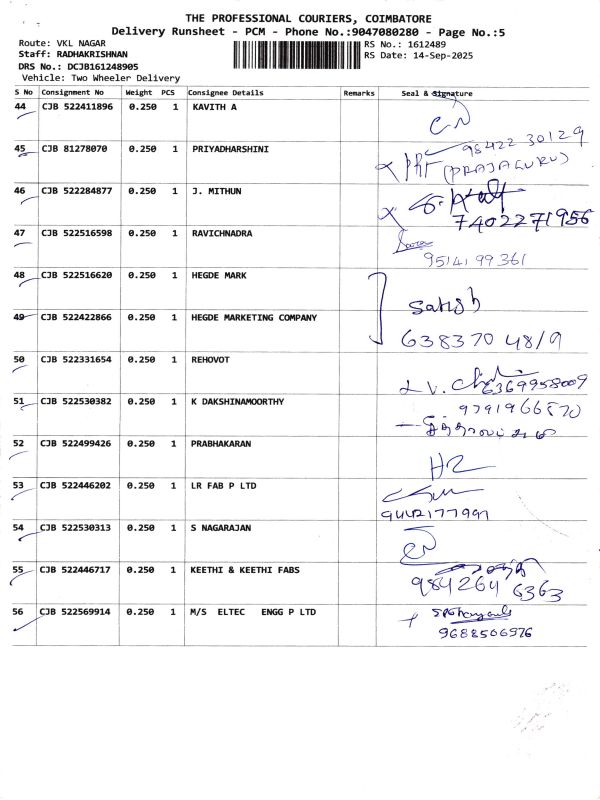 THE PROFESSIONAL COURIERS, COIMBATORE
Delivery Runsheet - PCM - Phone No.:9047080280 - Page No.:5
Route: VKL NAGAR RS No.: 1612489
Staff: RADHAKRISHNAN RS Date: 14-Sep-2025
DRS No.: DCJB161248905
Vehicle: Two Wheeler Delivery
S No Consignment No Weight PCS Consignee Details Remarks Seal & Signature
44 CJB 522411896 0.250 1 KAVITH A
45 CJB 81278070 0.250 1 PRIYADHARSHINI 98422 30129
(PRAJAGURU)
46 CJB 522284877 0.250 1 J. MITHUN
7402271956
47 CJB 522516598 0.250 1 RAVICHNADRA
9514199361
48 CJB 522516620 0.250 1 HEGDE MARK
49 CJB 522422866 0.250 1 HEGDE MARKETING COMPANY
638370 4819
50 CJB 522331654 0.250 1 REHOVOT
6369958009
51 CJB 522530382 0.250 1 K DAKSHINAMOORTHY 9791966870
52 CJB 522499426 0.250 1 PRABHAKARAN
53 CJB 522446202 0.250 1 LR FAB P LTD
9442177991
54 CJB 522530313 0.250 1 S NAGARAJAN
55 CJB 522446717 0.250 1 KEETHI & KEETHI FABS
984264 6363
56 CJB 522569914 0.250 1 M/S ELTEC ENGG P LTD
9688506976